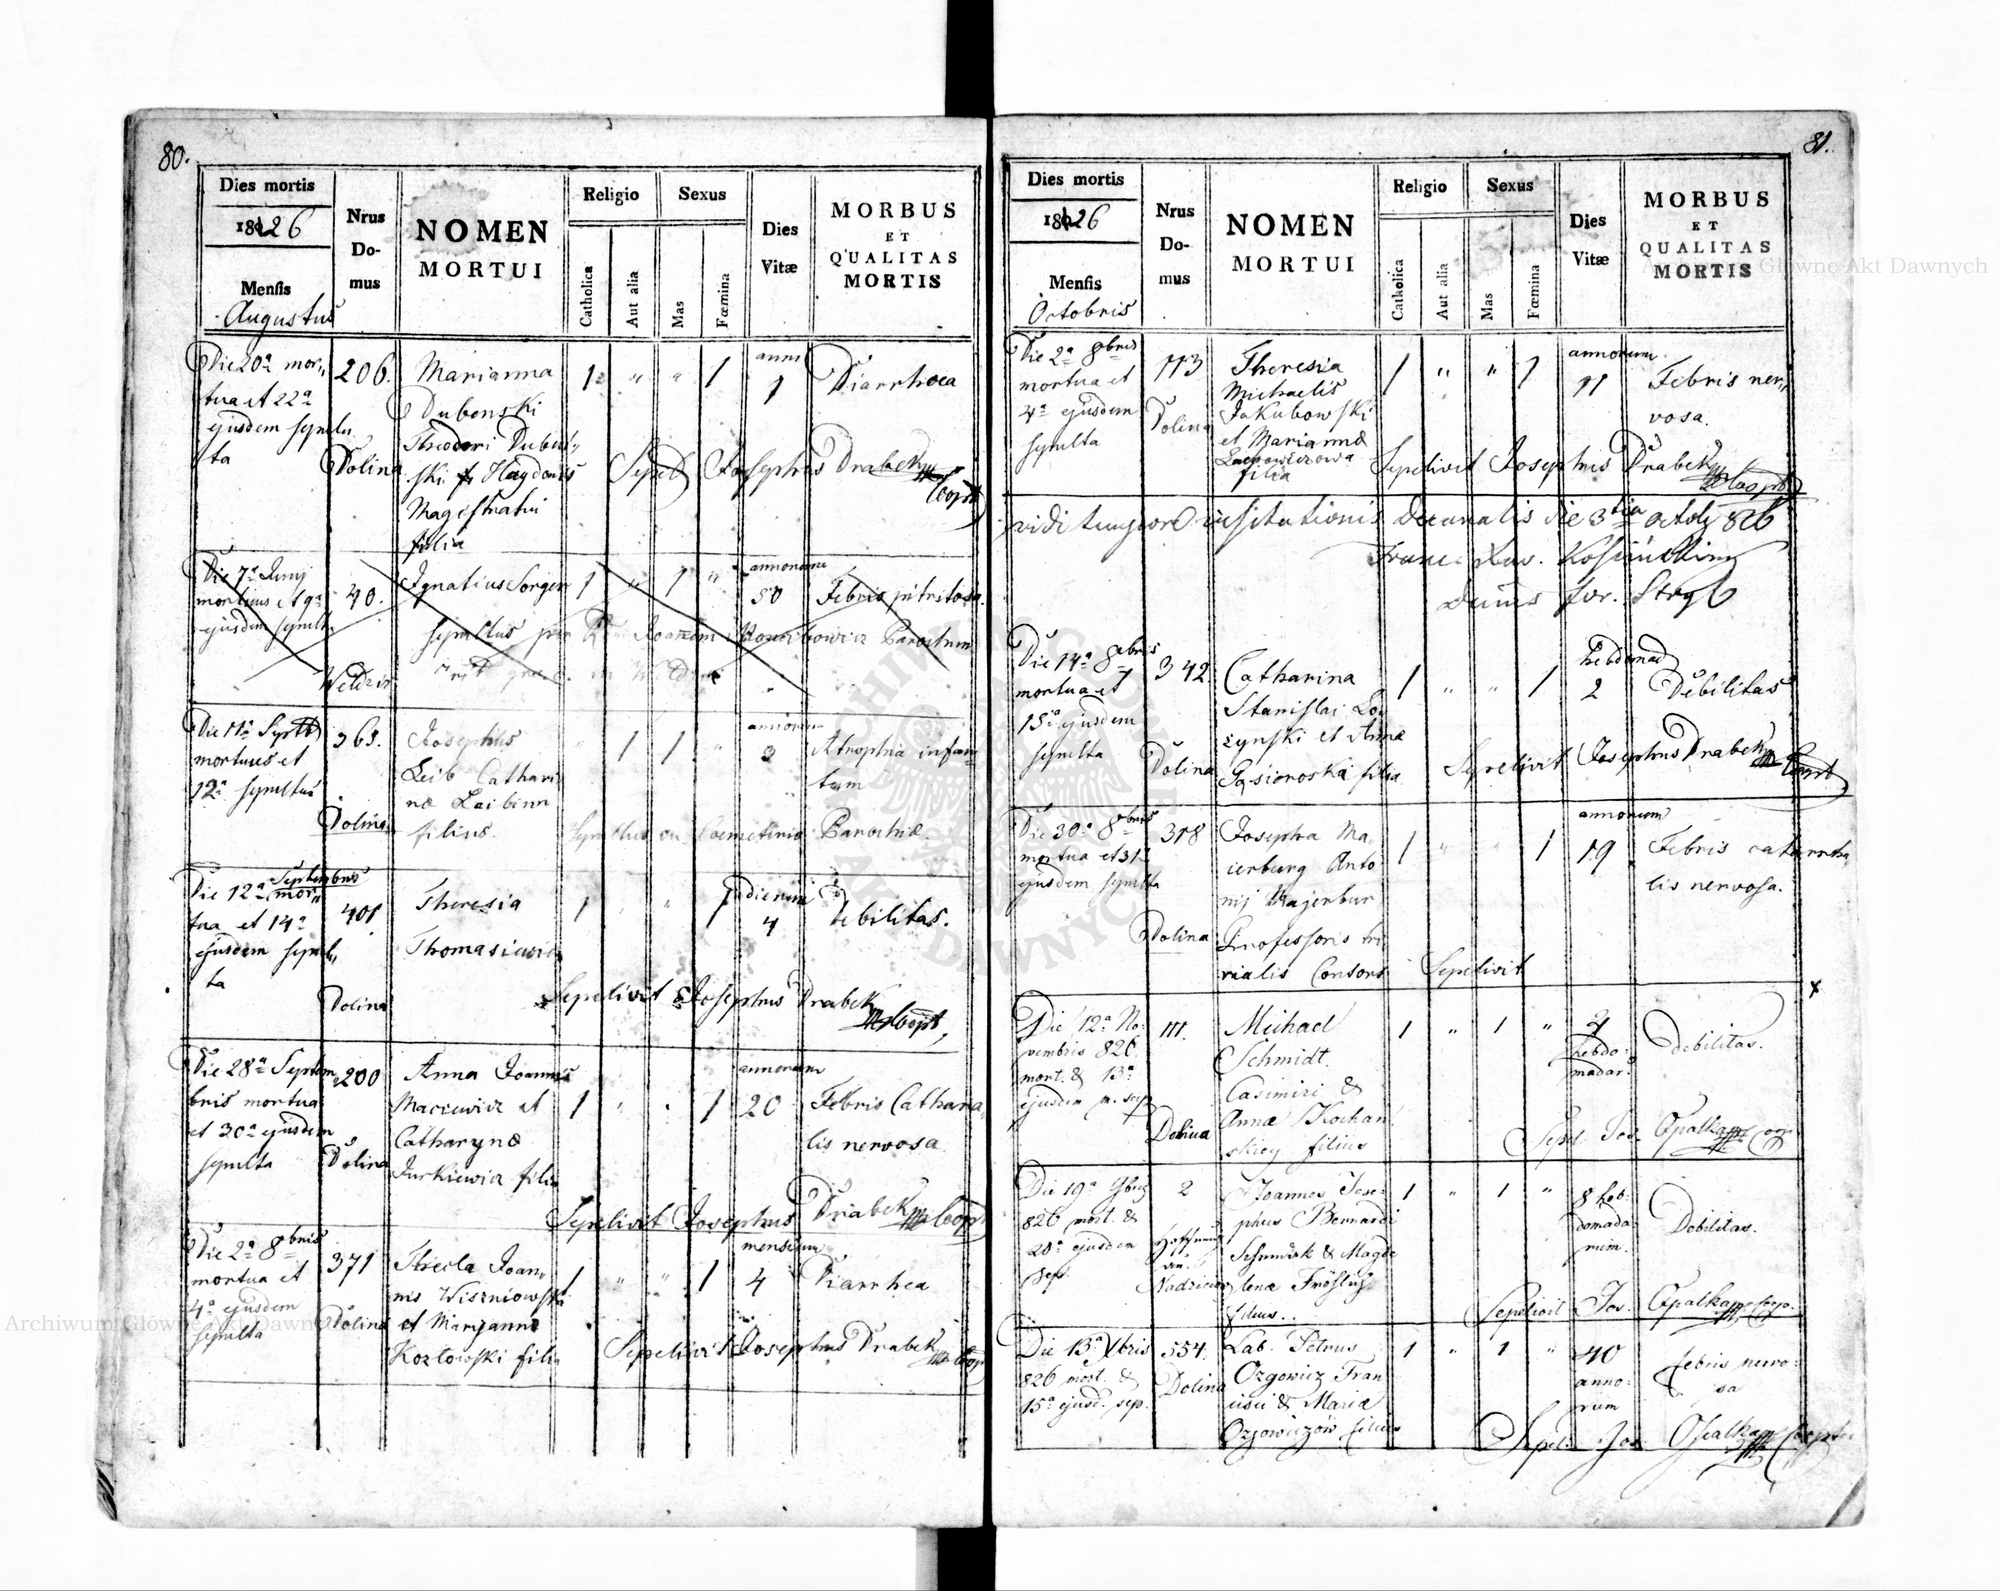 80.
Dies mortis
1826
Mensis
Augustus
Nrus
Do-
mus
NOMEN
MORTUI
Religio
Catholica
Aut alia
Sexus
Mas
Fœmina
Dies
Vitæ
MORBUS
ET
QUALITAS
MORTIS
Die 20a mor„
tua et 22a
ejusdem sepul„
ta
206.
Dolina
Marianna
Dubenski
Theodori Duben„
ski
Magistratus
filia
1 „ „ 1
anni
1
Diarrhoea
Sepel Josephus Drabek
Coopr
Die 7a Junij
mortuus et 9a
ejusdem sepult
40.
Weldzir
Ignatius Sorger
1 „ 1 „
annorum
50
Febris pitritosa.
sepultus per Joannem Parochum
Die 11a Septb
mortuus et
12a sepultus
365.
Dolina
Josephus
Leib Cathari
næ Leibinn
filius.
„ 1 1 „
annorum
3
Atrophia infan
tum
Sepultus in Coemeterio Parochiæ.
Die 12a Septembris mor„
tua et 14a
ejusdem sepul„
ta
401
Dolina
Theresia
Thomasiewicz
1 „ „ 1
dierum
4
debilitas.
Sepelivit Josephus Drabek
Coopr
Die 28a Septem
bris mortua
et 30a ejusdem
sepulta
200
Dolina
Anna Joannis
Maciewicz et
Catharynæ
Jurkiewicz filia
1 „ „ 1
annorum
20
Febris Catharra„
lis nervosa
Sepelivit Josephus Drabek Coopr
Die 2a 8bris
mortua et
4a ejusdem
sepulta
371
Dolina
Thecla Joan„
nis Wiszniowski
et Maryannæ
Kozłowski filia
1 „ „ 1
mensium
4
Diarrhea
Sepelivit Josephus Drabek Coopr
81.
Dies mortis
1826
Mensis
Octobris
Nrus
Do-
mus
NOMEN
MORTUI
Religio
Catholica
Aut alia
Sexus
Mas
Fœmina
Dies
Vitæ
MORBUS
ET
QUALITAS
MORTIS
Die 2a 8bris
mortua et
4a ejusdem
sepulta
113
Dolina
Theresia
Michaelis
Jakubowski
et Mariannæ
filia
1 „ „ 1
annorum
11
Febris ner„
vosa.
Sepelivit Josephus Drabek
Coopr
vidi tempore visitationis Decanalis die 3tia Octobr 826
Franc. Xav.
Die 14a 8bris
mortua et
15a ejusdem
sepulta
342.
Dolina
Catharina
Stanislai Lo„
zynski et Annæ
Gąsioroska filia
1 „ „ 1
hebdomad
2
Debilitas
Sepelivit Josephus Drabek Coopr
Die 30a 8bris
mortua et 31a
ejusdem sepulta
318
Dolina
Josepha Ma„
ierberg Anto
nij Majerbur
Professoris tri
vialis Consors
1 „ „ 1
annorum
19
Febris catarrha
lis nervosa.
Sepelivit
Die 12a No„
vembris 826.
mort. & 13a
ejusdem
111.
Dolina
Michael
Schmidt.
Casimiri &
Annæ Kochan
skiey filius
1 „ 1 „
2
hebdo:
madar:
Debilitas.
Sepel. Jos. Opalka Coop
Die 19a 9bris
826 mort. &
20a ejusdem
sep.
2
Joannes Jose„
phus Bernardi
& Magda
lenæ
filius.
1 „ 1 „
8 heb:
domada:
rum.
Debilitas.
Sepelivit Jos. Opalka Coop.
Die 13a Xbris
826 mort. &
15a ejusd. sep.
554.
Dolina
Lab. Petrus
Ozgowicz Fran
cisci & Maria
Ozgowiczów filius
1 „ 1 „
40
anno:
rum
febris nervo:
sa
Sepel. Jos. Opalka Coop
Archiwum Główne Akt Dawnych